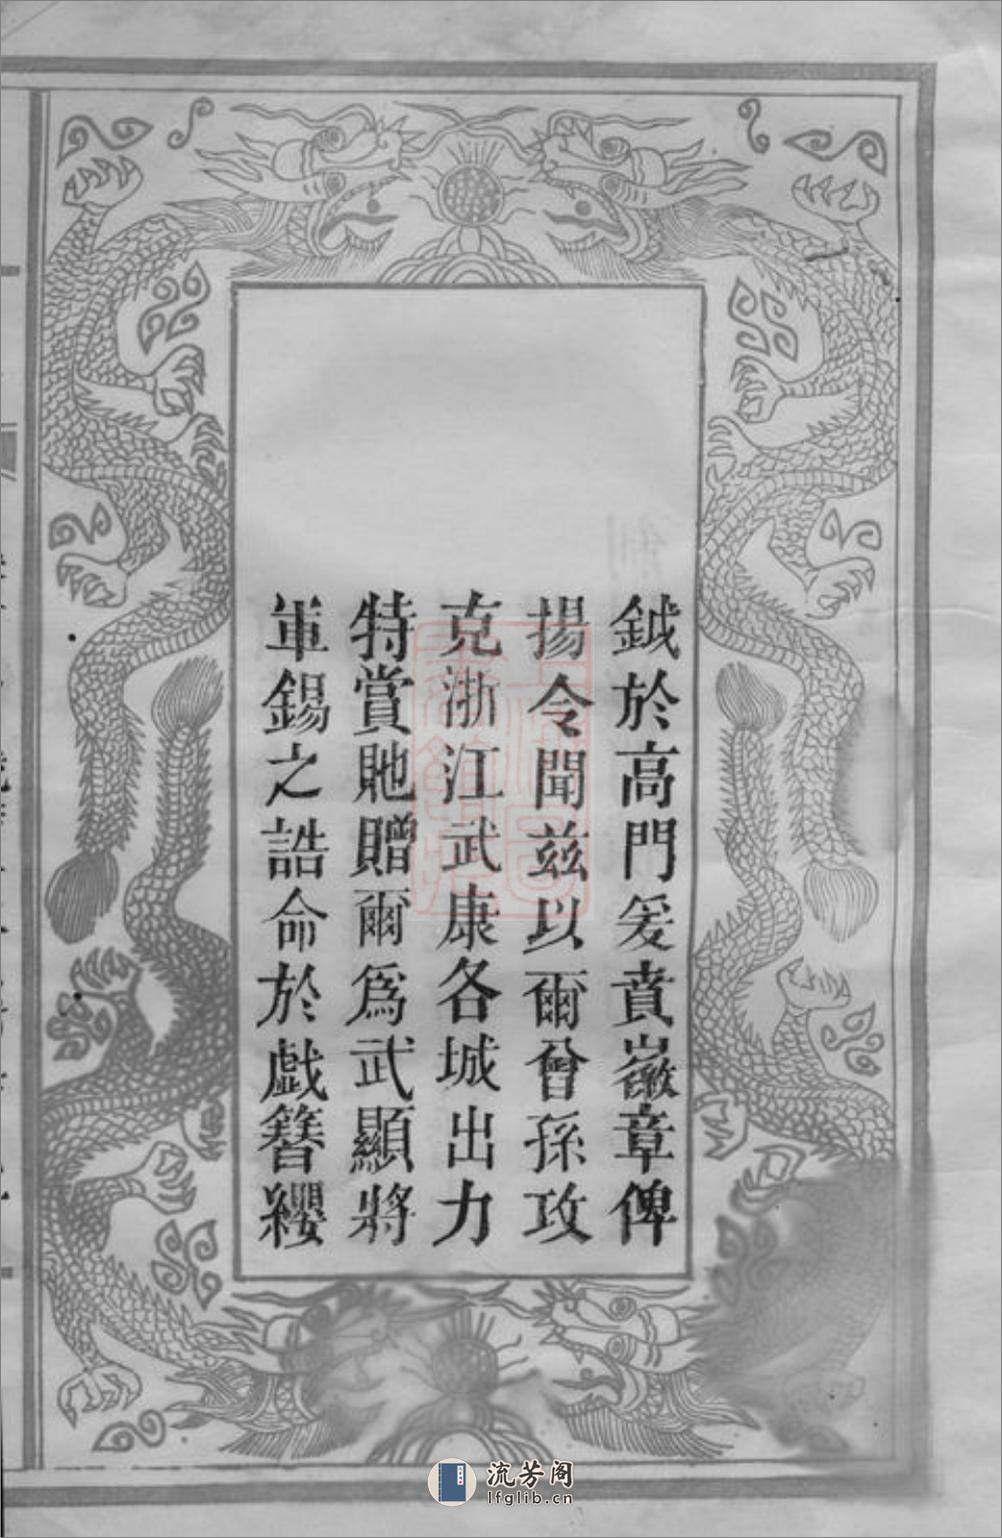 鉞於高門爰賁徽章俾
揚令聞茲以爾曾孫攻
克浙江武康各城出力
特賞貤贈爾爲武顯將
軍錫之誥命於戲簪纓
流芳阁
lfglib.cn